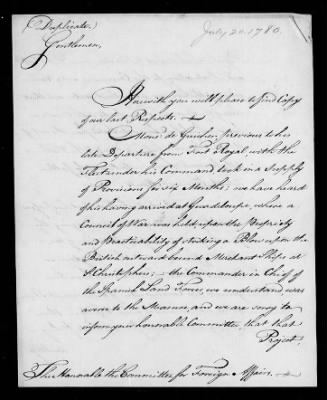 (Duplicate.)
July 20. 1780.
Gentlemen,
Herewith you will please to find Copy
of our last Respects. —
Mons: de Guichen, previous to his
late Departure from Fort Royal, with the
Fleet under his Command took in a Supply
of Provisions for six Months; we have heard
of his having arrived at Guadeloupe, where a
Council of War was held, upon the Propriety
and Practicability of striking a Blow upon the
British outward bound Merchant Ships at
St Christophers; — the Commander in Chief of
the Spanish Land Forces, we understand, was
averse to the Measure, and we are sorry to
inform your honorable Committee, that that
Project
The Honorable the Committee for Foreign Affairs. —